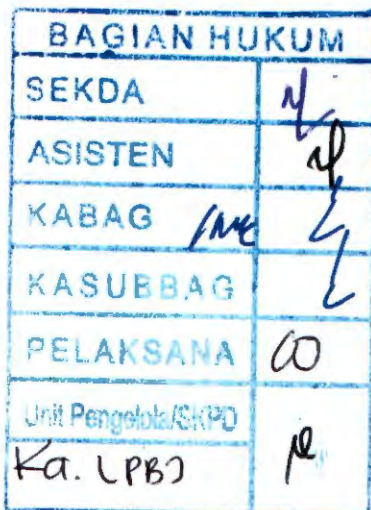 BAGIAN HUKUM
SEKDA
ASISTEN
KABAG
KASUBBAG
PELAKSANA
Unit Pengelola/SKPD
Ka. LPBJ